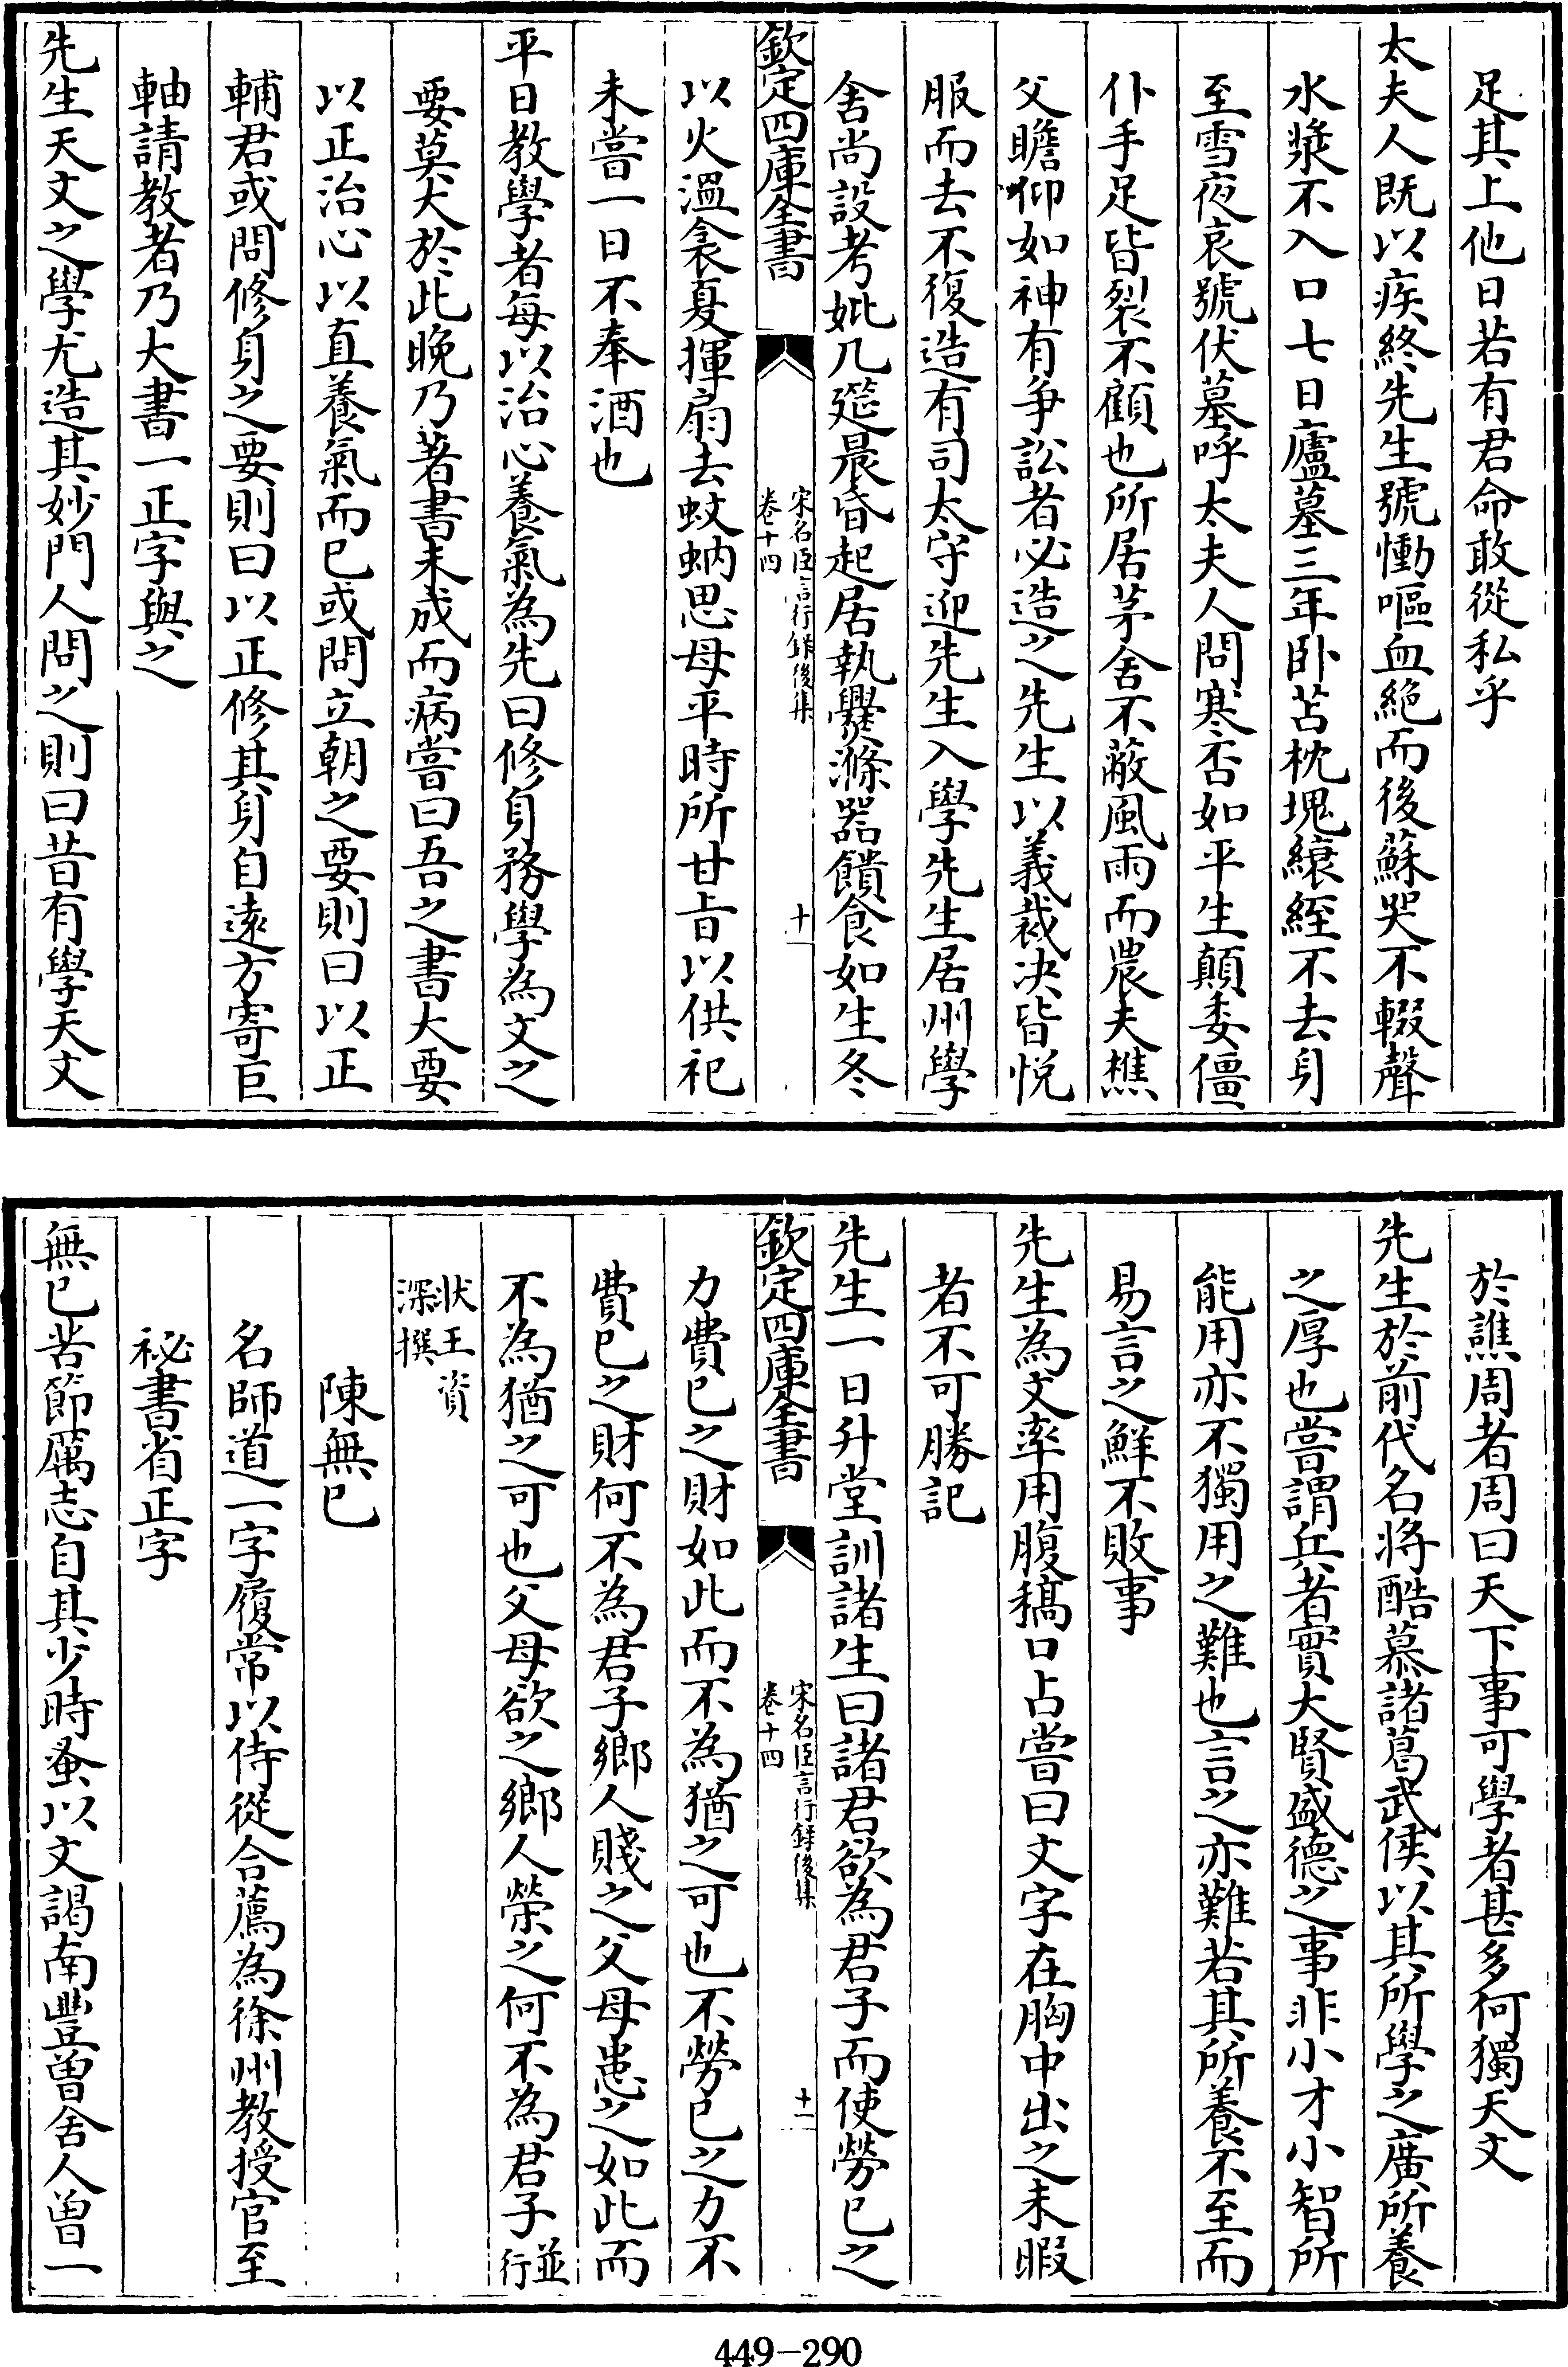 足其上他日若有君命敢從私乎
太夫人既以疾終先生號慟嘔血絶而後蘇哭不輟聲
水漿不入口七日廬墓三年卧苫枕塊縗絰不去身
至雪夜哀號伏墓呼太夫人問寒否如平生顛委僵
仆手足皆裂不顧也所居茅舍不蔽風雨而農夫樵
父瞻仰如神有争訟者必造之先生以義裁决皆悦
服而去不復造有司太守迎先生入學先生居州學
舍尚設考妣几筵晨昏起居執爨滌器饋食如生冬
欽定四庫全書
宋名臣言行錄後集
卷十四
十一
以火溫衾夏揮扇去蚊蚋思母平時所甘旨以供祀
未嘗一日不奉酒也
平日教學者每以治心養氣為先曰修身務學為文之
要莫大於此晚乃著書未成而病嘗曰吾之書大要
以正治心以直養氣而已或問立朝之要則曰以正
輔君或問修身之要則曰以正修其身自遠方寄巨
軸請教者乃大書一正字與之
先生天文之學尤造其妙門人問之則曰昔有學天文
於譙周者周曰天下事可學者甚多何獨天文
先生於前代名将酷慕諸葛武侯以其所學之廣所養
之厚也嘗謂兵者實大賢盛德之事非小才小智所
能用亦不獨用之難也言之亦難若其所養不至而
易言之鮮不敗事
先生為文率用腹稿口占嘗曰文字在胸中出之未暇
者不可勝記
先生一日升堂訓諸生曰諸君欲為君子而使勞已之
欽定四庫全書
宋名臣言行錄後集
卷十四
十一
力費已之財如此而不為猶之可也不勞已之力不
費已之財何不為君子鄉人賤之父母惡之如此而
不為猶之可也父母欲之鄉人榮之何不為君子並行
狀王資
深撰
陳無已
名師道一字履常以侍從合薦為徐州教授官至
祕書省正字
無已苦節厲志自其少時蚤以文謁南豐曾舍人曾一
449-290